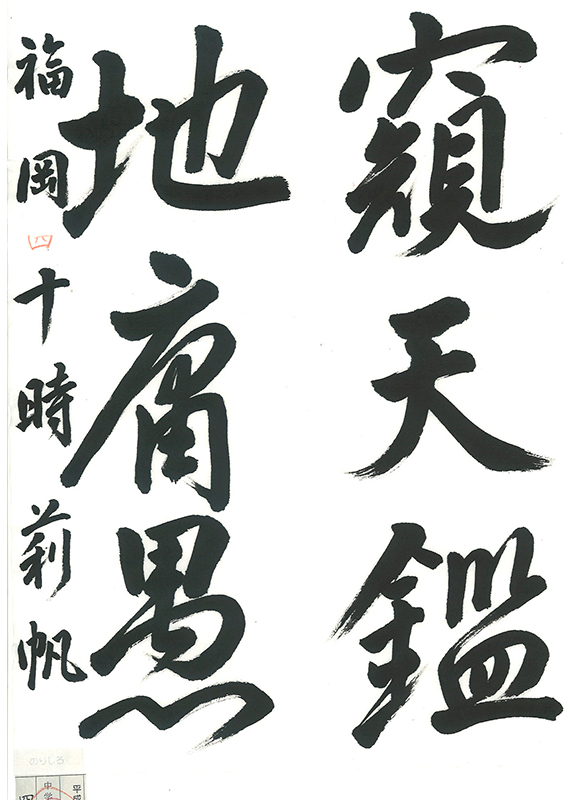 窺天鑑
地庸愚
福岡 四 十時莉帆
のりしろ
中学